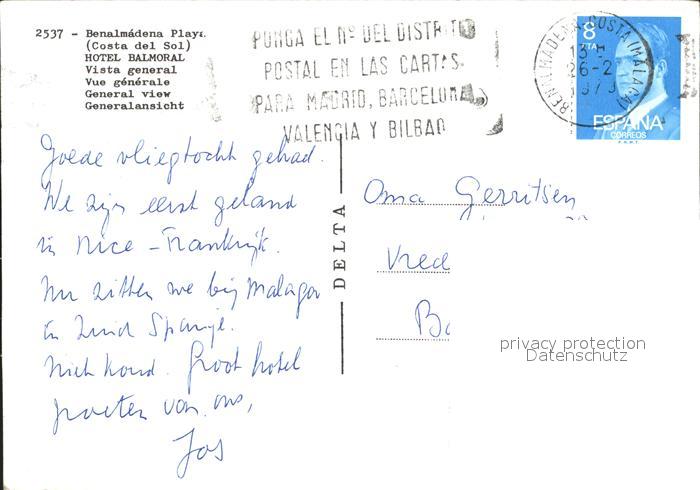 2537 - Benalmádena Playa
(Costa del Sol)
HOTEL BALMORAL
Vista general
Vue générale
General view
Generalansicht
PONGA EL Nº DEL DISTRITO
POSTAL EN LAS CARTAS
PARA MADRID, BARCELONA
VALENCIA Y BILBAO
BENALMADENA-COSTA (MALAGA)
8
PTA
ESPAÑA
CORREOS
F.N.M.T.
Goede vliegtocht gehad.
We zijn eerst geland
in Nice - Frankrijk.
Nu zitten we bij Malaga
in Zuid Spanje.
Niet koud. Groot hotel
groeten van ons,
Jos
DELTA
Oma Gerritsen
Vred
Ba
privacy protection
Datenschutz